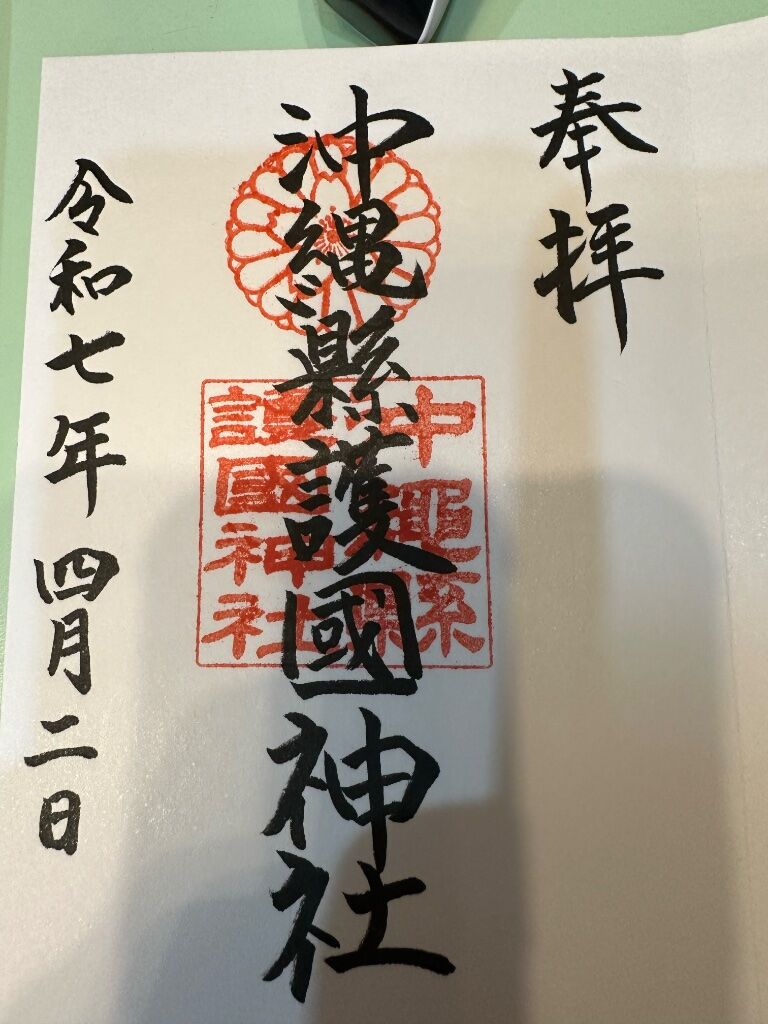 奉拝
沖縄縣護國神社
令和七年四月二日
護國神社